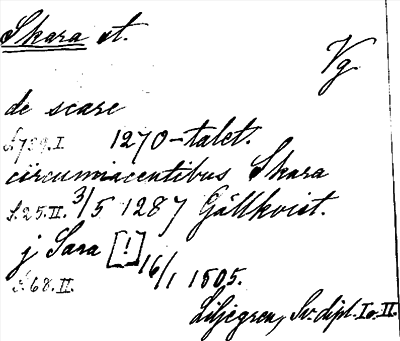 Skara st.
Vg
de scare
S. 739. I. 1270-talet.
circumiacentibus Skara
S. 25. II. 3/5 1287 Gällkvist.
j Sara [!] 16/1 1505.
S. 68. II.
Liljegren, Sv. dipl. I o. II.